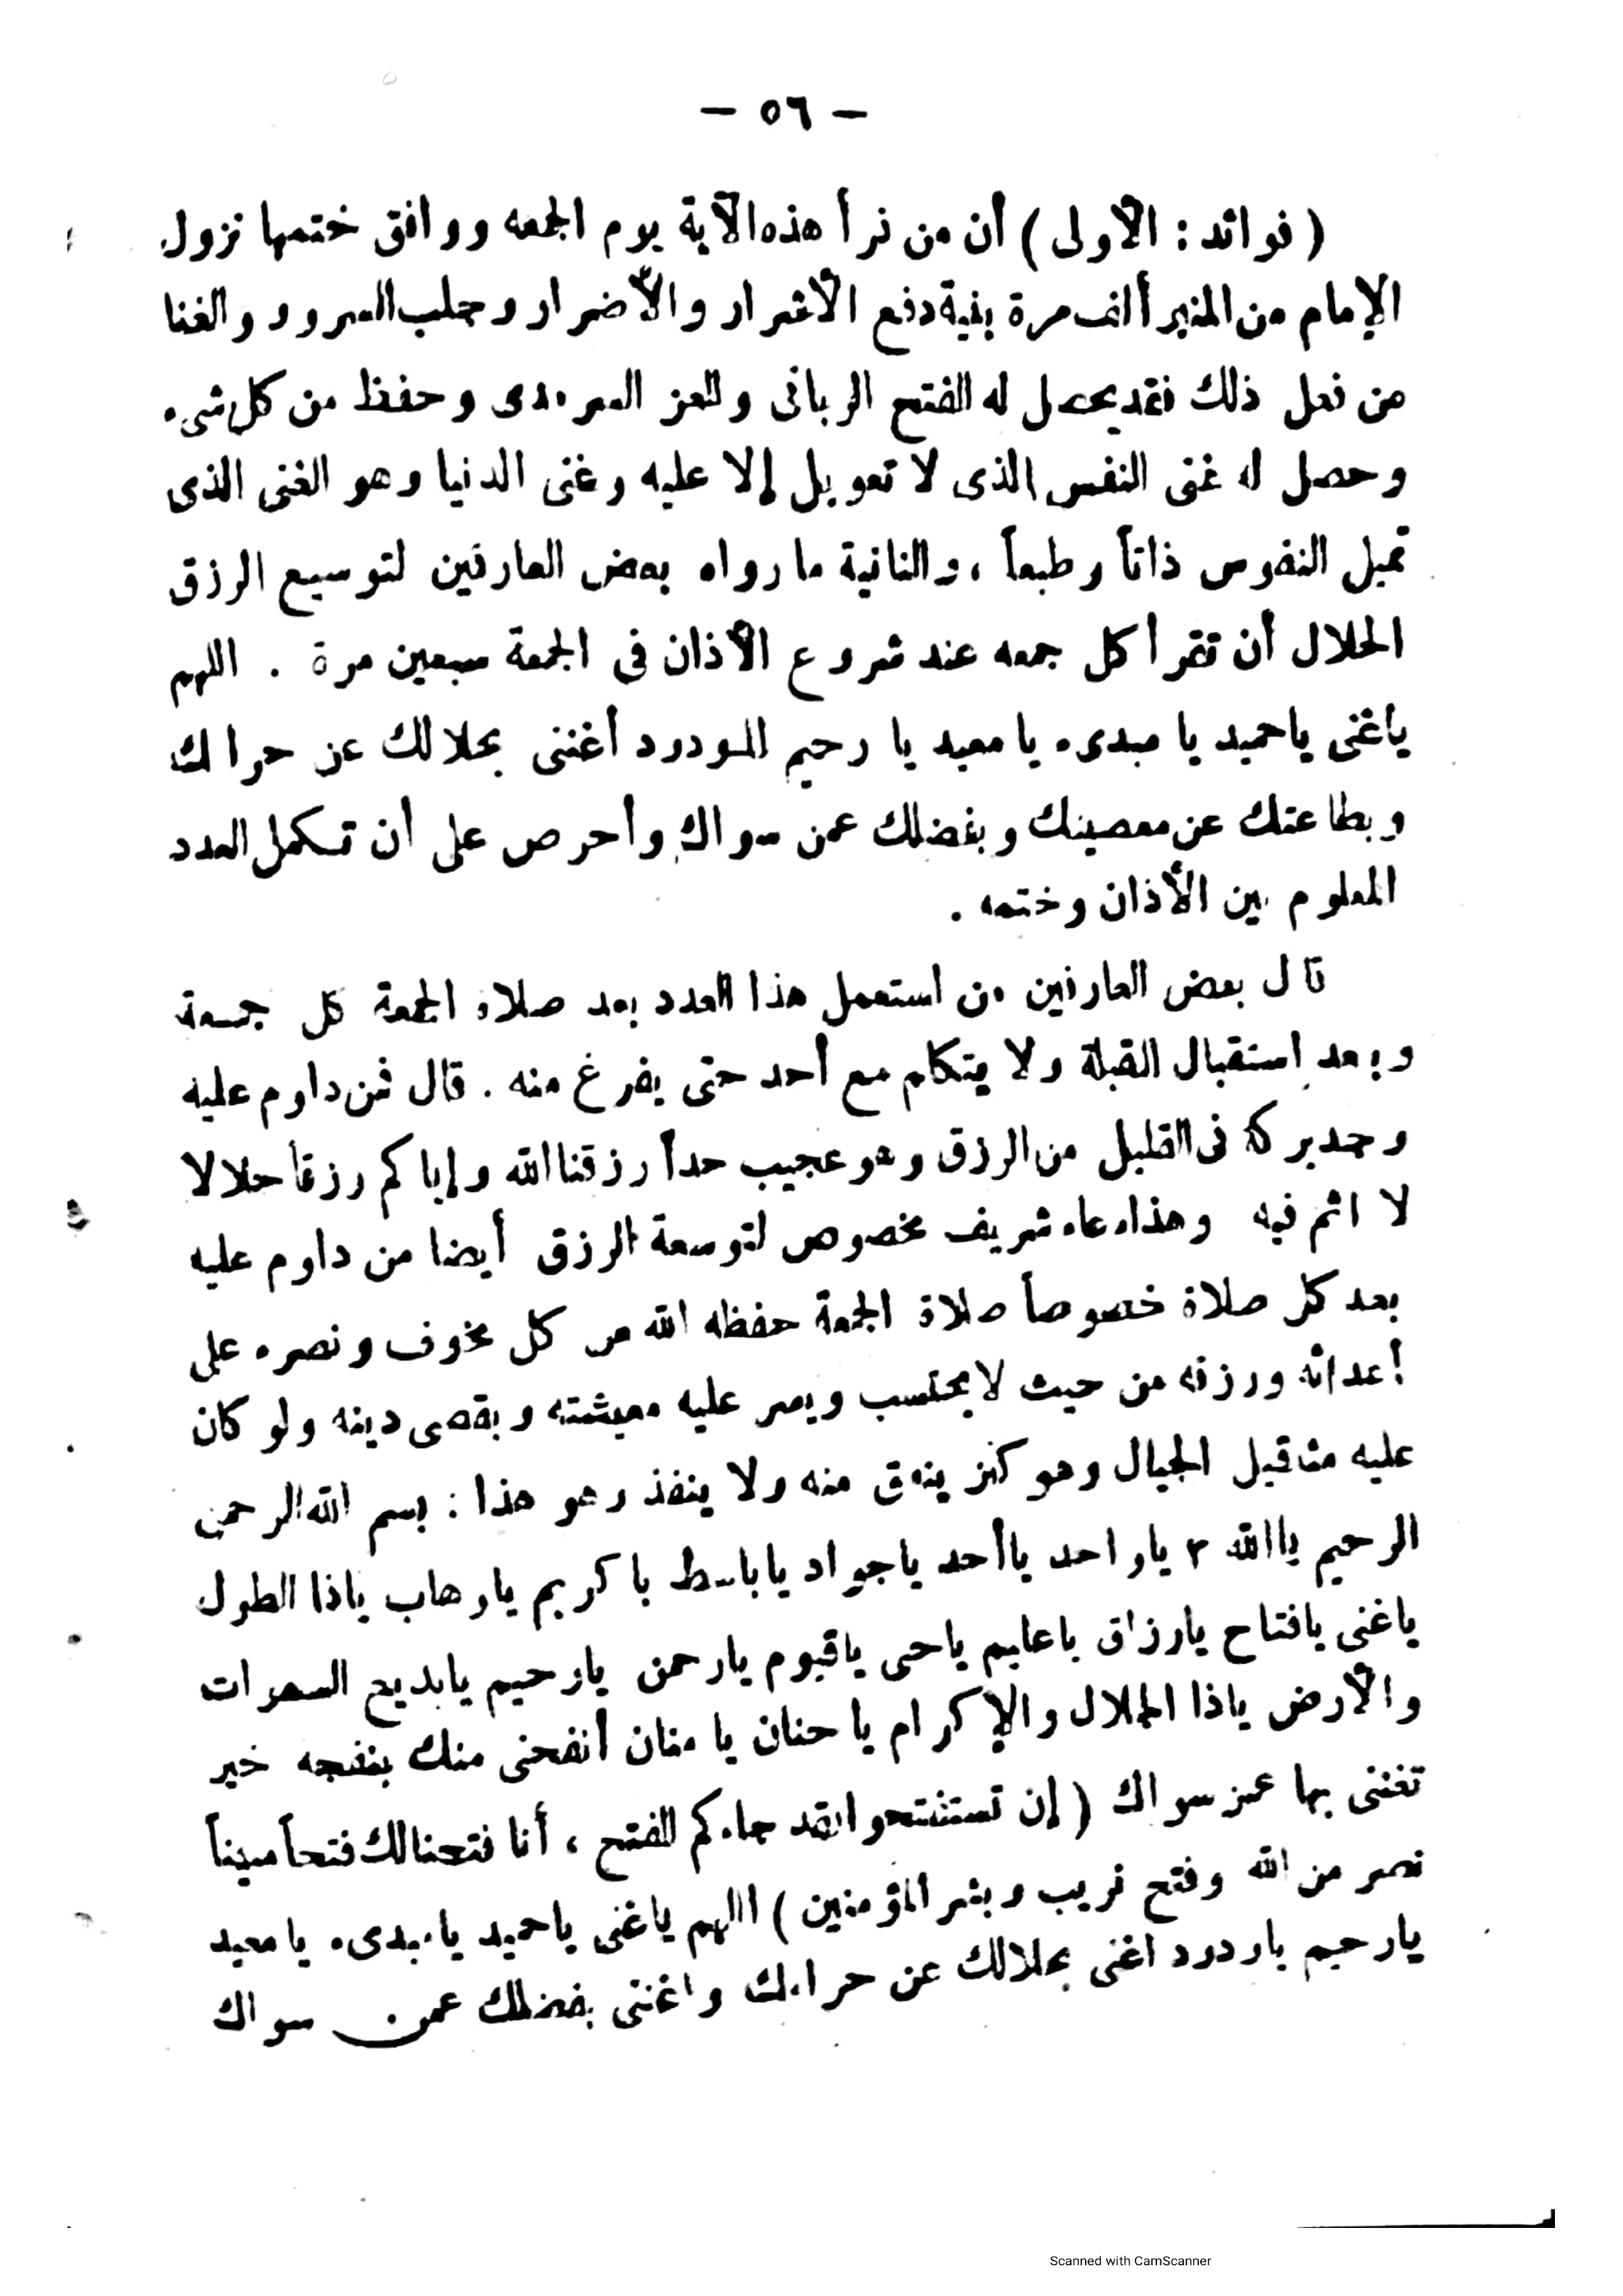 — ٥٦ —
( فوائد : الأولى ) أن من قرأ هذه الآية يوم الجمعه ووافق ختمها نزول
الإمام من المنبر ألف مرة بنية دفع الأشرار والأضرار وجلب السرور والغنا
من فعل ذلك فقد يحصل له الفتح الربانى والعز السرمدى وحفظ من كل شىء
وحصل له غنى النفس الذى لا تعويل إلا عليه وغنى الدنيا وهو الغنى الذى
تميل النفوس ذاتاً وطبعاً ، والثانية ما رواه بعض العارفين لتوسيع الرزق
الحلال أن تقرأ كل جمعه عند شروع الأذان فى الجمعة سبعين مرة . اللهم
ياغنى ياحميد يا مبدىء يا معيد يا رحيم الودود أغننى بحلالك عن حرامك
وبطاعتك عن معصيتك وبفضلك عمن سواك وأحرص على أن تكمل العدد
المعلوم بين الأذان وختمه .
قال بعض العارفين من استعمل هذا العدد بعد صلاه الجمعة كل جمعة
وبعد إستقبال القبلة ولا يتكلم مع أحد حتى يفرغ منه . قال فمن داوم عليه
وجد بركة فى القليل من الرزق وهو عجيب جداً رزقنا الله وإياكم رزقاً حلالا
لا اثم فيه وهذا دعاء شريف مخصوص لتوسعة الرزق أيضا من داوم عليه
بعد كل صلاة خصوصاً صلاة الجمعة حفظه الله من كل مخوف ونصره على
أعدائه ورزقه من حيث لا يحتسب ويسر عليه معيشته ويقضى دينه ولو كان
عليه مثاقيل الجبال وهو كنز ينفق منه ولا ينفذ وهو هذا : بسم الله الرحمن
الرحيم يا الله ٣ ياواحد ياأحد ياجواد ياباسط ياكريم ياوهاب ياذا الطول
ياغنى يافتاح يارزاق ياعليم ياحى ياقيوم يارحمن يارحيم يابديع السموات
والأرض ياذا الجلال والإكرام يا حنان يا منان أنفحنى منك بنفحه خير
تغننى بها عمن سواك ( إن تستفتحوا فقد جاءكم الفتح ، أنا فتحنا لك فتحاً مبيناً
نصر من الله وفتح قريب وبشر المؤمنين ) اللهم ياغنى ياحميد يامبدىء يا معيد
يارحيم ياودود اغنى بحلالك عن حرامك واغننى بفضلك عمن سواك
Scanned with CamScanner